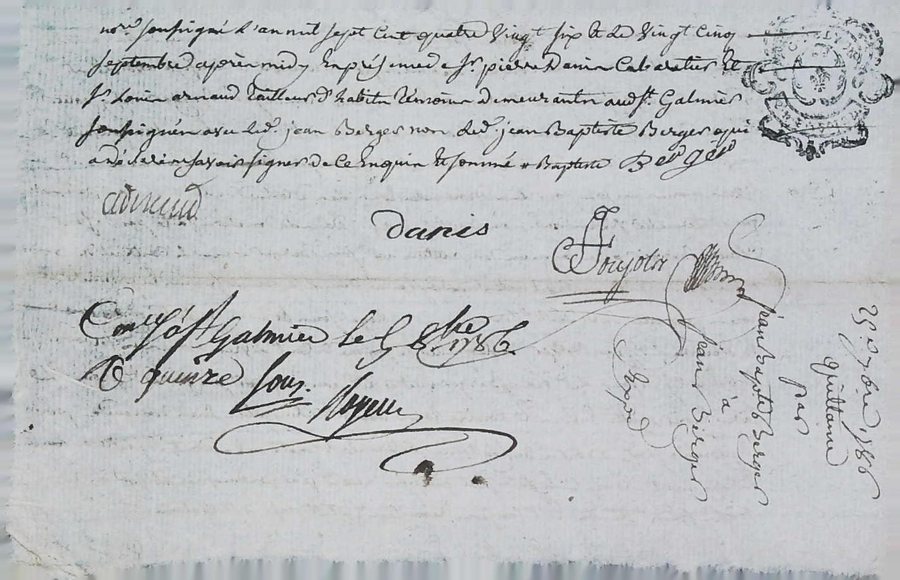 nore soussigné l'an mil sept cent quatre vingt six et le vingt cinq
septembre après midy en présence de Sr pierre danis Cabaretier et
Sr Louis arnaud tailleur d'habits témoins demeurants aud. St. Galmier
soussignés avec led. jean Berger non led. jean Baptiste Berger qui
a déclaré ne savoir signer de ce enquis et sommé
Berger
danis
Conlé à St Galmier le 5 8bre 1786
quinze sous
25e 7bre 1786
quittance
par
jean Baptiste Berger
à
jean Berger